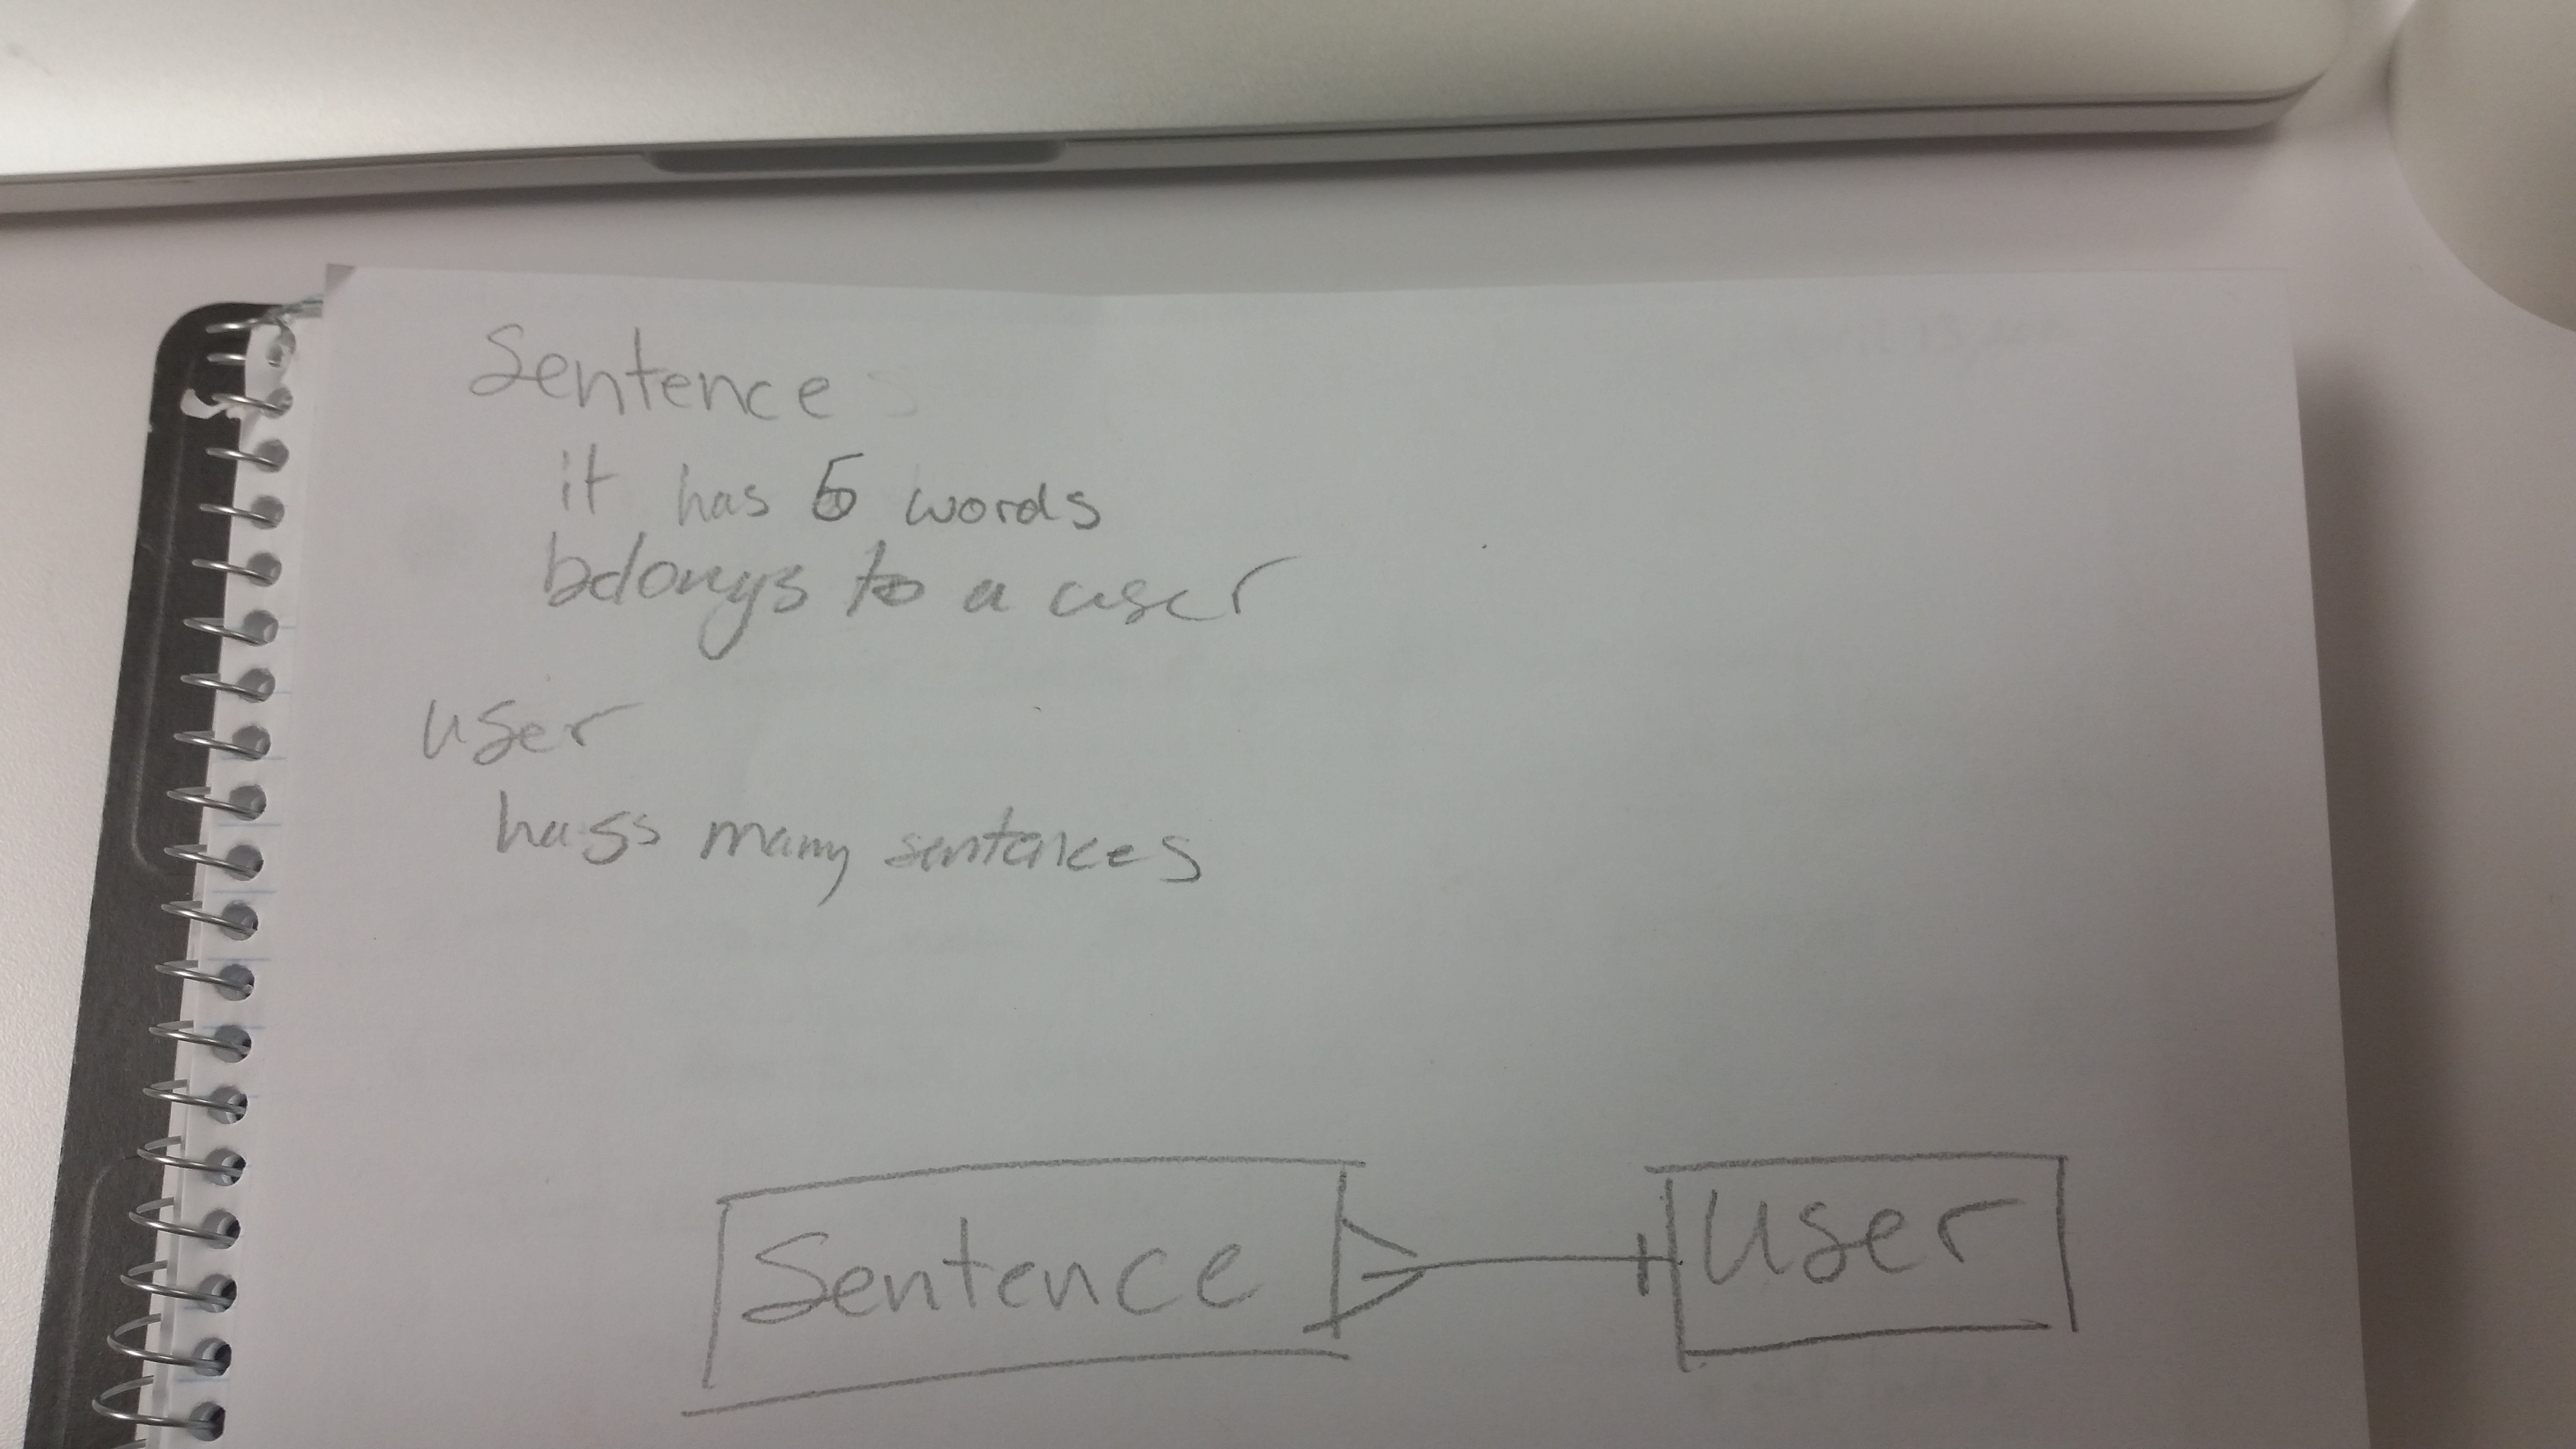 Sentence
it has 5 words
belongs to a user
user
hass many sentences
Sentence
user